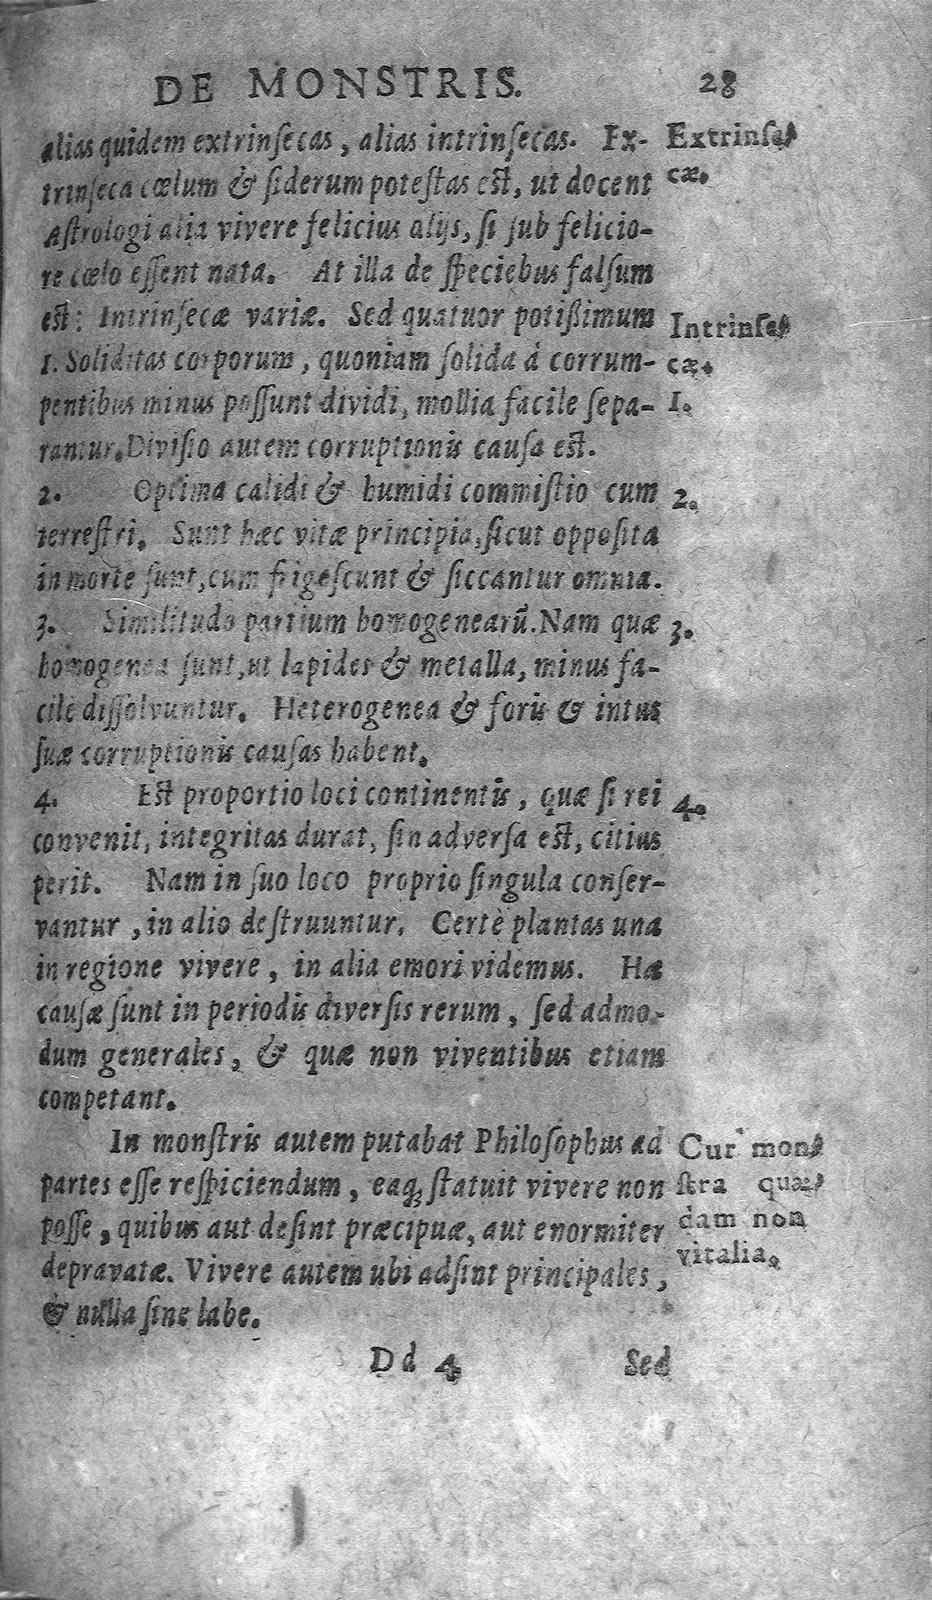 DE MONSTRIS. 28
alias quidem extrinſecas, alias intrinſecas. Ex- Extrinſe-
trinſeca cœlum & ſiderum poteſtas eſt, ut docent cæ.
Aſtrologi alia vivere felicius alijs, ſi ſub felicio-
re cœlo eſſent nata. At illa de ſpeciebus falſum
eſt: Intrinſecæ variæ. Sed quatuor potißimum Intrinſe-
1. Soliditas corporum, quoniam ſolida à corrum- cæ.
pentibus minus poſſunt dividi, mollia facile ſepa- 1.
rantur. Diviſio autem corruptionis cauſa eſt.
2. Optima calidi & humidi commiſtio cum 2.
terreſtri. Sunt hæc vitæ principia, ſicut oppoſita
in morte ſunt, cum frigeſcunt & ſiccantur omnia.
3. Similitudo partium homogenearū. Nam quæ 3.
homogenea ſunt, ut lapides & metalla, minus fa-
cilè diſſolvuntur. Heterogenea & foris & intus
ſuæ corruptionis cauſas habent.
4. Eſt proportio loci continentis, quæ ſi rei 4.
convenit, integritas durat, ſin adverſa eſt, citius
perit. Nam in ſuo loco proprio ſingula conſer-
vantur, in alio deſtruuntur. Certè plantas una
in regione vivere, in alia emori videmus. Hæ
cauſæ ſunt in periodis diverſis rerum, ſed admo-
dum generales, & quæ non viventibus etiam
competant.
In monſtris autem putabat Philoſophus ad Cur mon-
partes eſſe reſpiciendum, eaq; ſtatuit vivere non ſtra quæ-
poſſe, quibus aut deſint præcipuæ, aut enormiter dam non
depravatæ. Vivere autem ubi adſint principales, vitalia.
& nulla ſine labe.
Dd 4 Sed